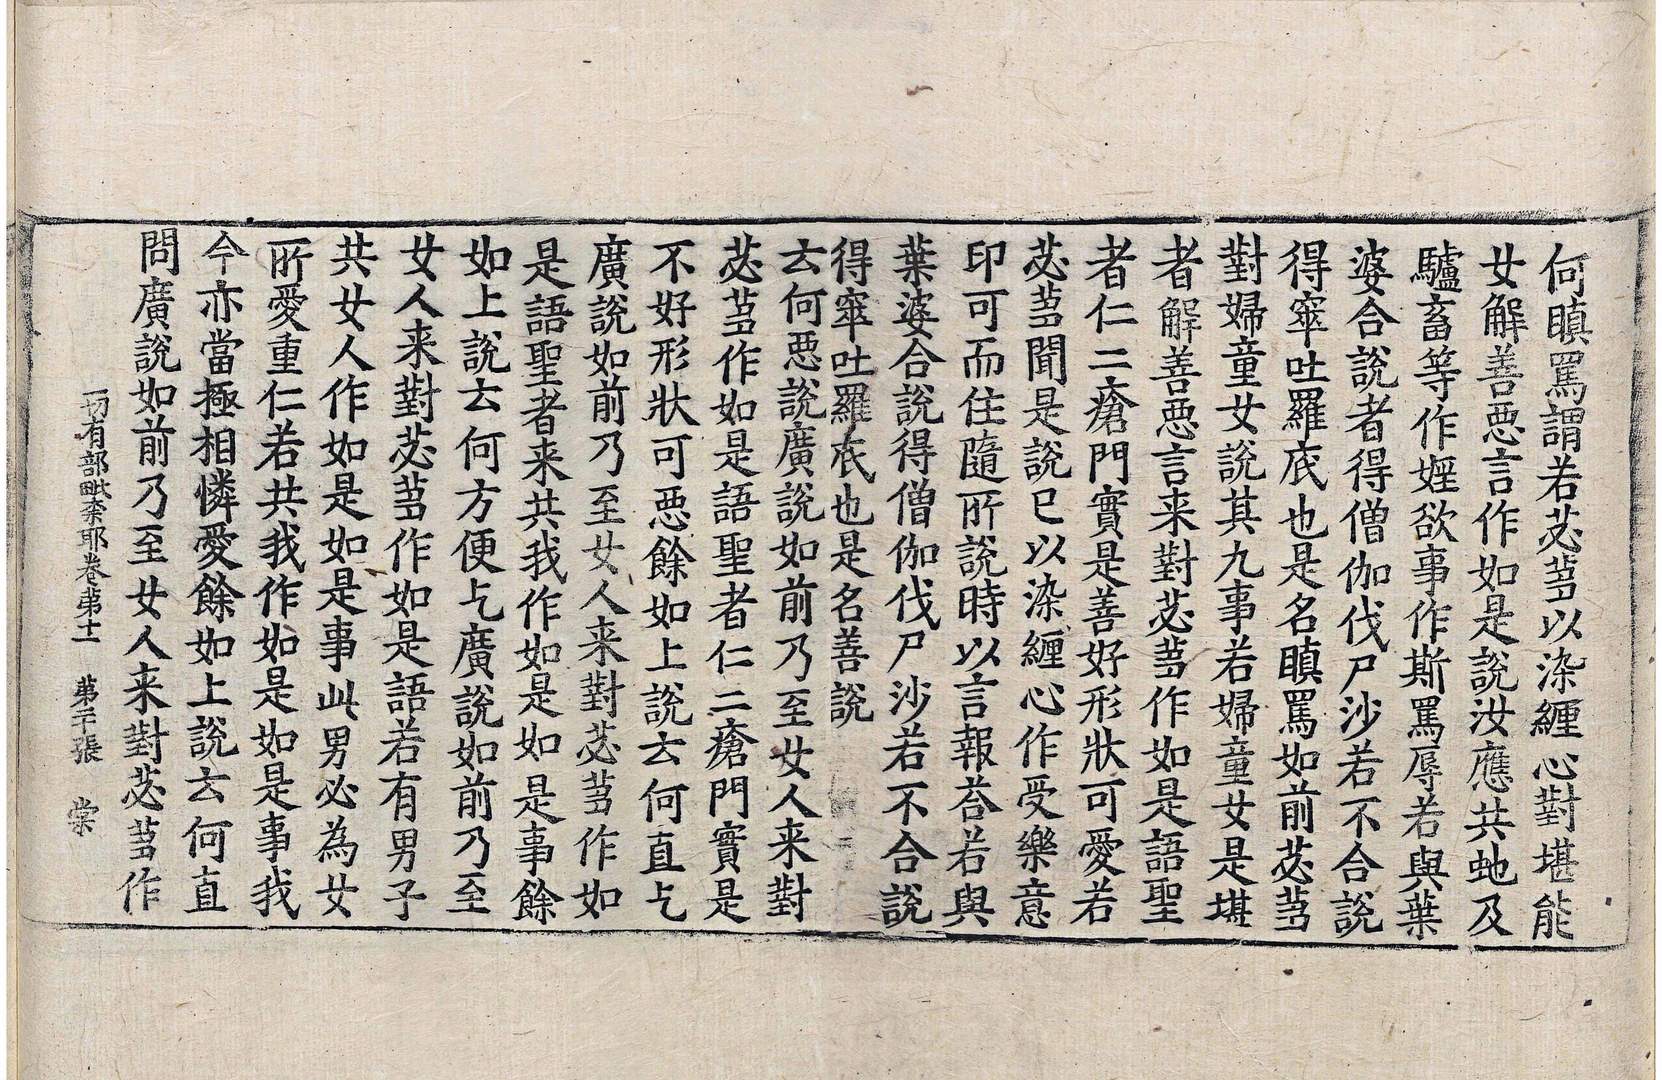 何瞋罵謂若苾蒭以染纏心對堪能
女解善惡言作如是說汝應共虵及
驢畜等作婬欲事作斯罵辱若與葉
婆合說者得僧伽伐尸沙若不合說
得窣吐羅底也是名瞋罵如前苾蒭
對婦童女說其九事若婦童女是堪
者解善惡言来對苾蒭作如是語聖
者仁二瘡門實是善好形狀可愛若
苾蒭聞是說已以染纏心作受樂意
印可而住隨所說時以言報荅若與
葉婆合說得僧伽伐尸沙若不合說
得窣吐羅底也是名善說
云何惡說廣說如前乃至女人来對
苾蒭作如是語聖者仁二瘡門實是
不好形狀可惡餘如上說云何直乞
廣說如前乃至女人来對苾蒭作如
是語聖者来共我作如是如是事餘
如上說云何方便乞廣說如前乃至
女人来對苾蒭作如是語若有男子
共女人作如是如是事此男必為女
所愛重仁若共我作如是如是事我
今亦當極相憐愛餘如上說云何直
問廣說如前乃至女人来對苾蒭作
一切有部毗奈耶卷苐十一 苐二十張 棠